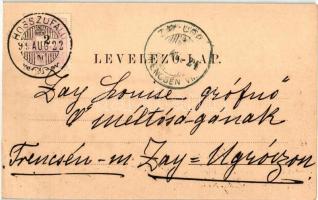 HOSSZUFALU
99 AUG 22
ZAY-UGR
TRENCSÉN VM.
LEVELEZŐ-LAP.
Zay Louise grófnő
Ő méltóságának
Trencsén-m. Zay=Ugróczon